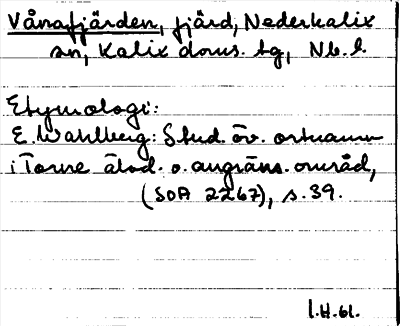 Vånafjärden, fjärd, Nederkalix
sn, Kalix doms. tg, Nb. l.
Etymologi:
E. Wahlberg: Stud. öv. ortnamn
i Torne älvd. o. angräns. område,
(SOA 2267), s. 39.
I.H.61.